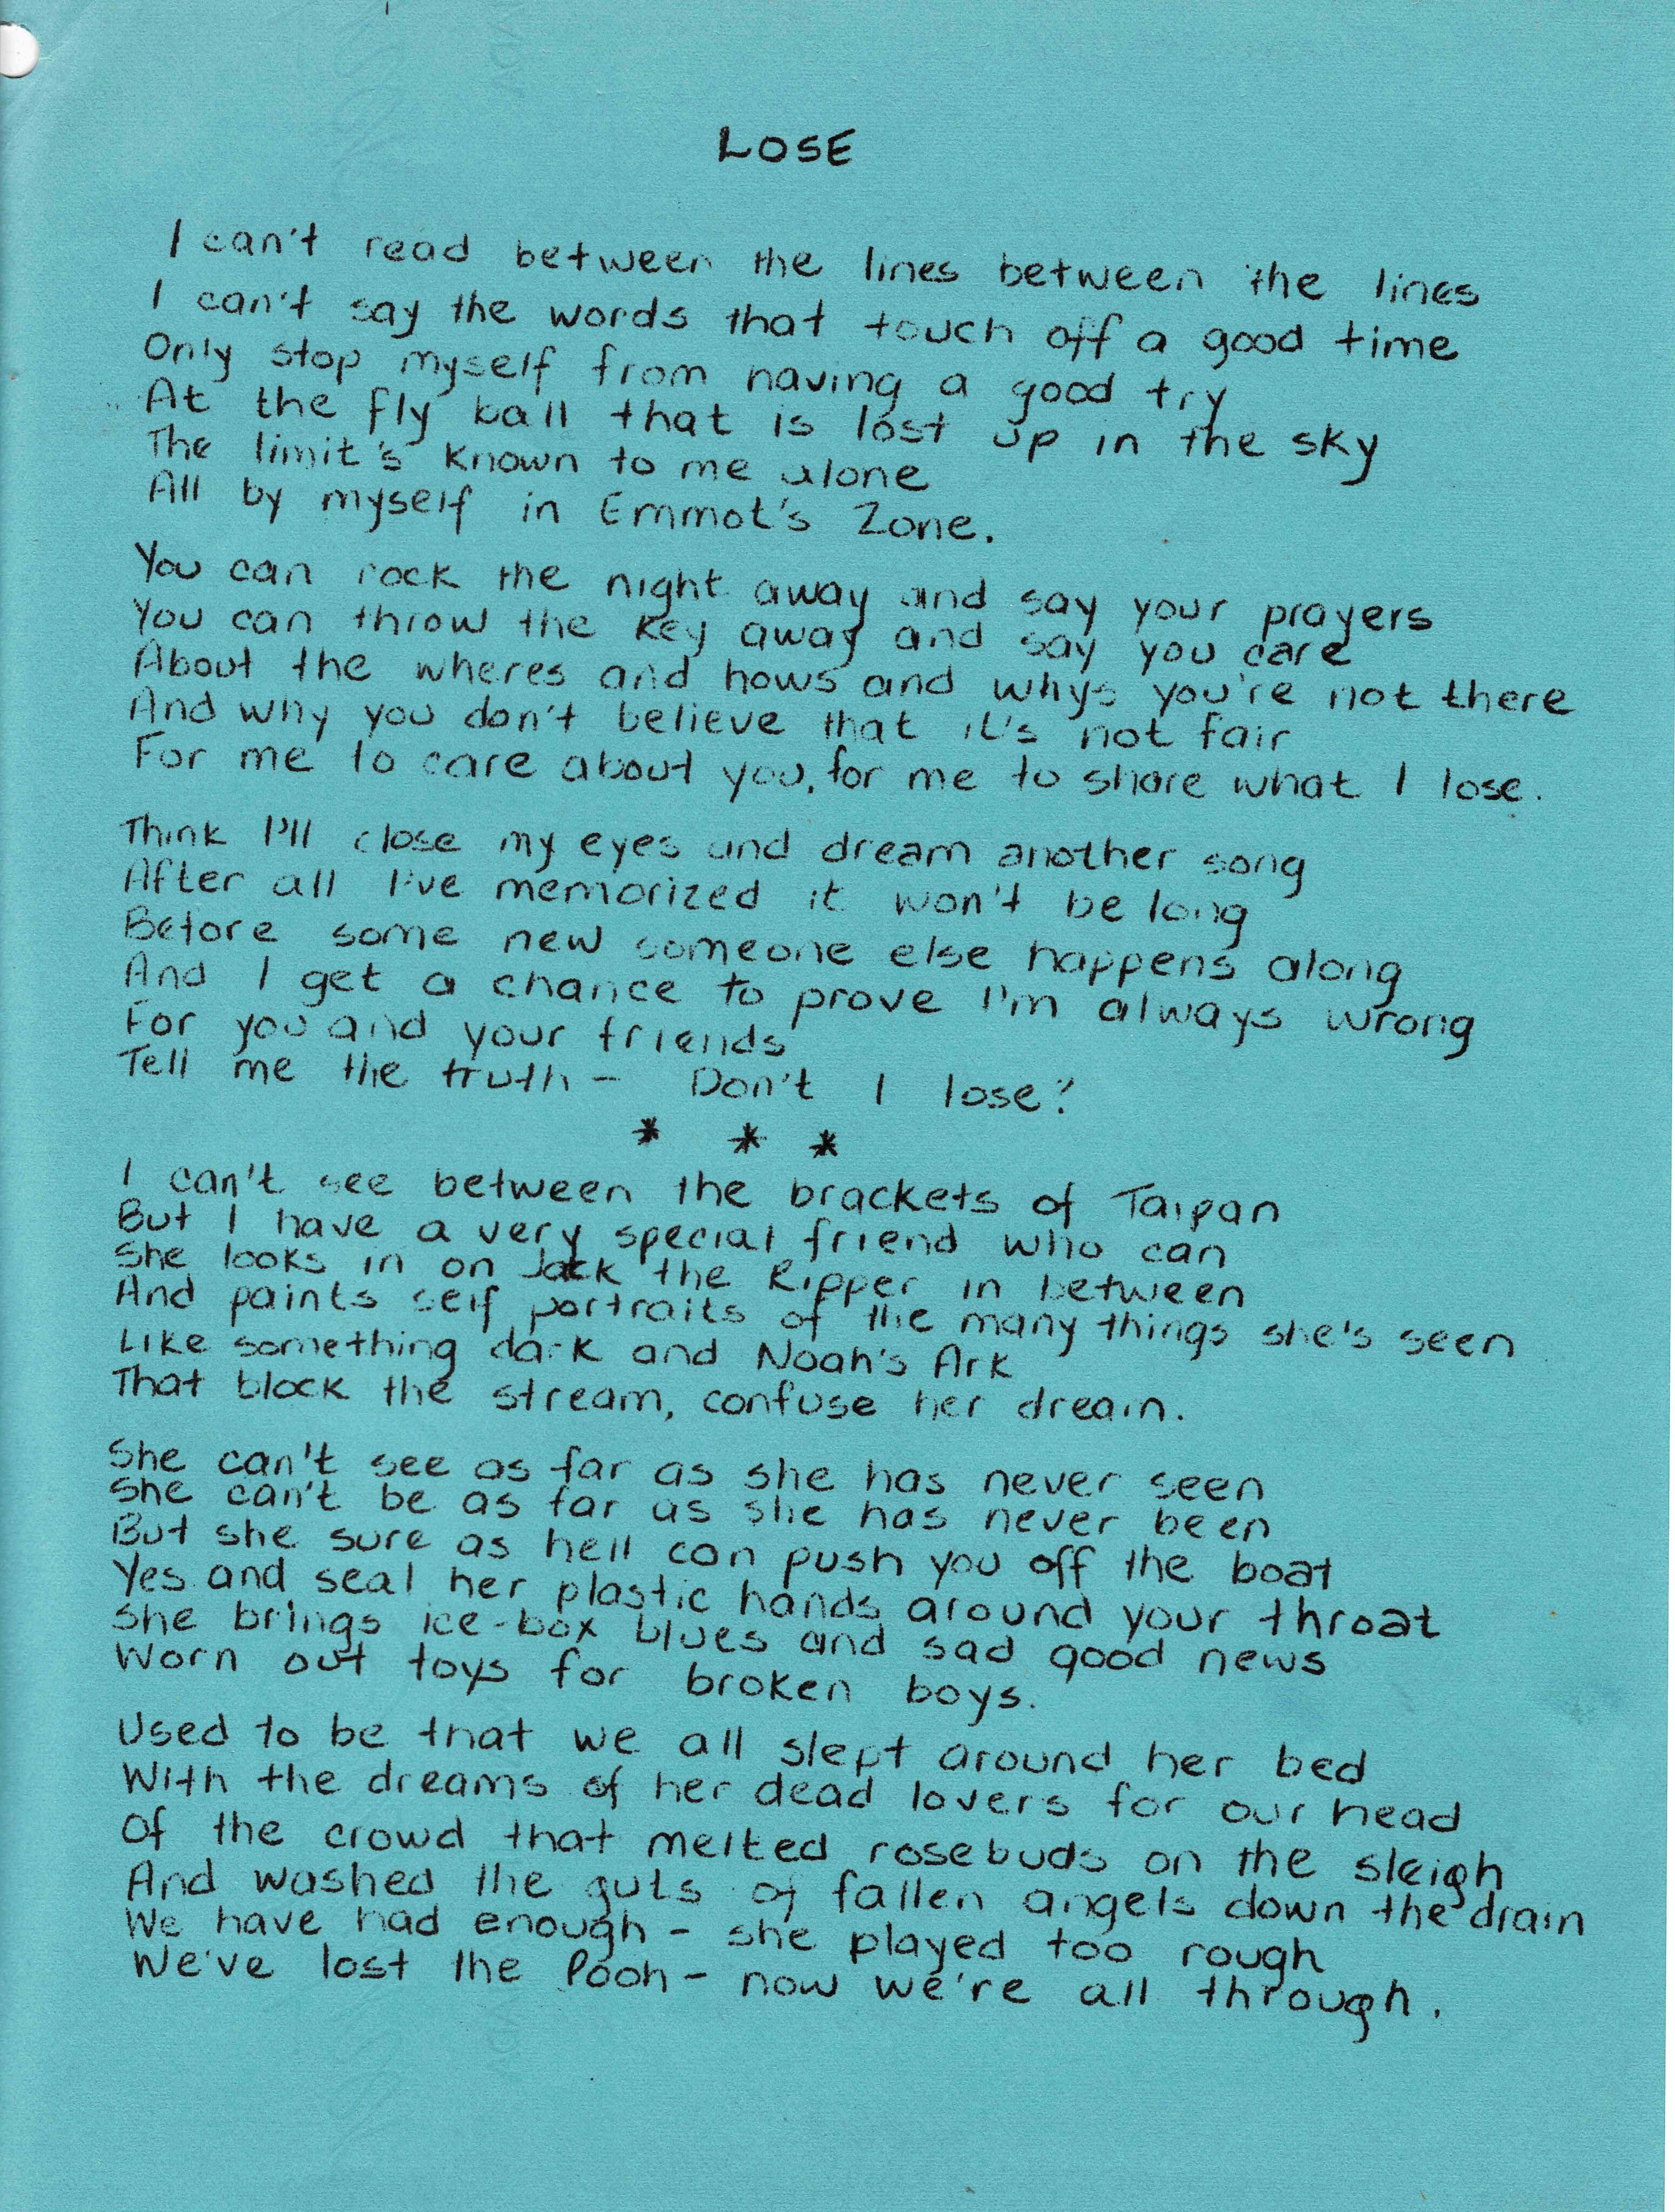 LOSE
I can't read between the lines between the lines
I can't say the words that touch off a good time
Only stop myself from having a good try
At the fly ball that is lost up in the sky
The limit's known to me alone
All by myself in Emmot's Zone.
You can rock the night away and say your prayers
You can throw the key away and say you care
About the wheres and hows and whys you're not there
And why you don't believe that it's not fair
For me to care about you, for me to share what I lose.
Think I'll close my eyes and dream another song
After all I've memorized it won't be long
Before some new someone else happens along
And I get a chance to prove I'm always wrong
For you and your friends
Tell me the truth - Don't I lose?
* * *
I can't see between the brackets of Taipan
But I have a very special friend who can
She looks in on Jack the Ripper in between
And paints self portraits of the many things she's seen
Like something dark and Noah's Ark
That block the stream, confuse her dream.
She can't see as far as she has never seen
She can't be as far as she has never been
But she sure as hell can push you off the boat
Yes and seal her plastic hands around your throat
She brings ice-box blues and sad good news
Worn out toys for broken boys.
Used to be that we all slept around her bed
With the dreams of her dead lovers for our head
Of the crowd that melted rosebuds on the sleigh
And washed the guts of fallen angels down the drain
We have had enough - she played too rough
We've lost the Pooh - now we're all through.